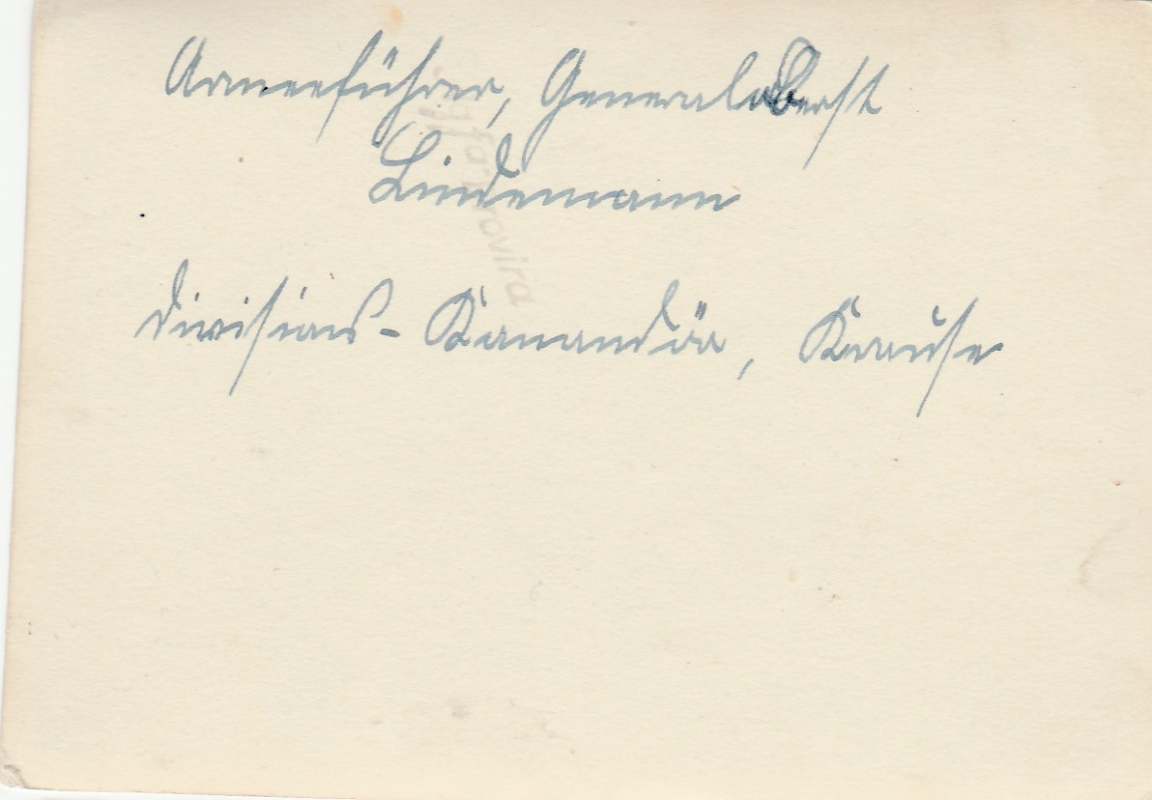 Armeeführer, Generaloberst
Lindemann
Divisions-Kommandör, Krause